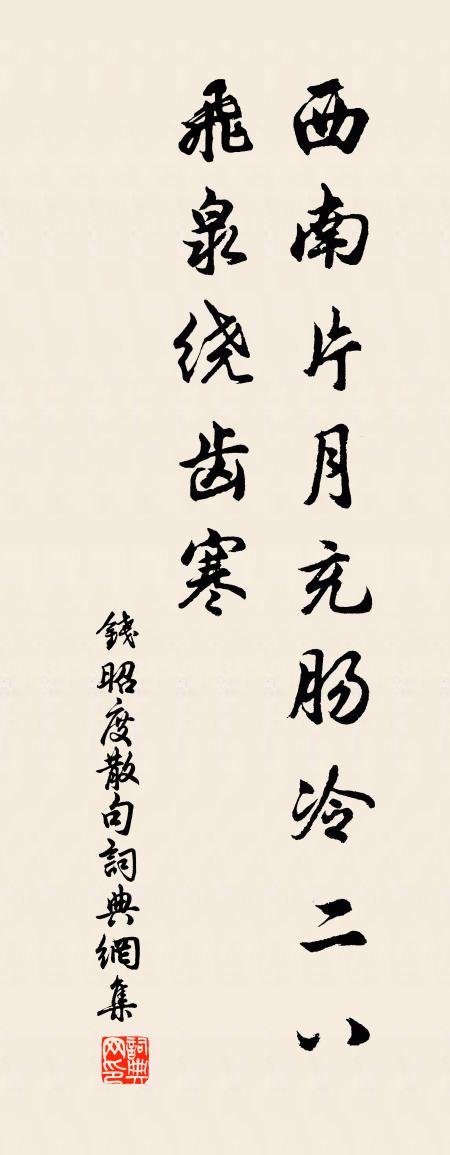 西南片月充肠冷二八
飛泉绕齿寒
錢昭度散句詞典網集
詞典网印